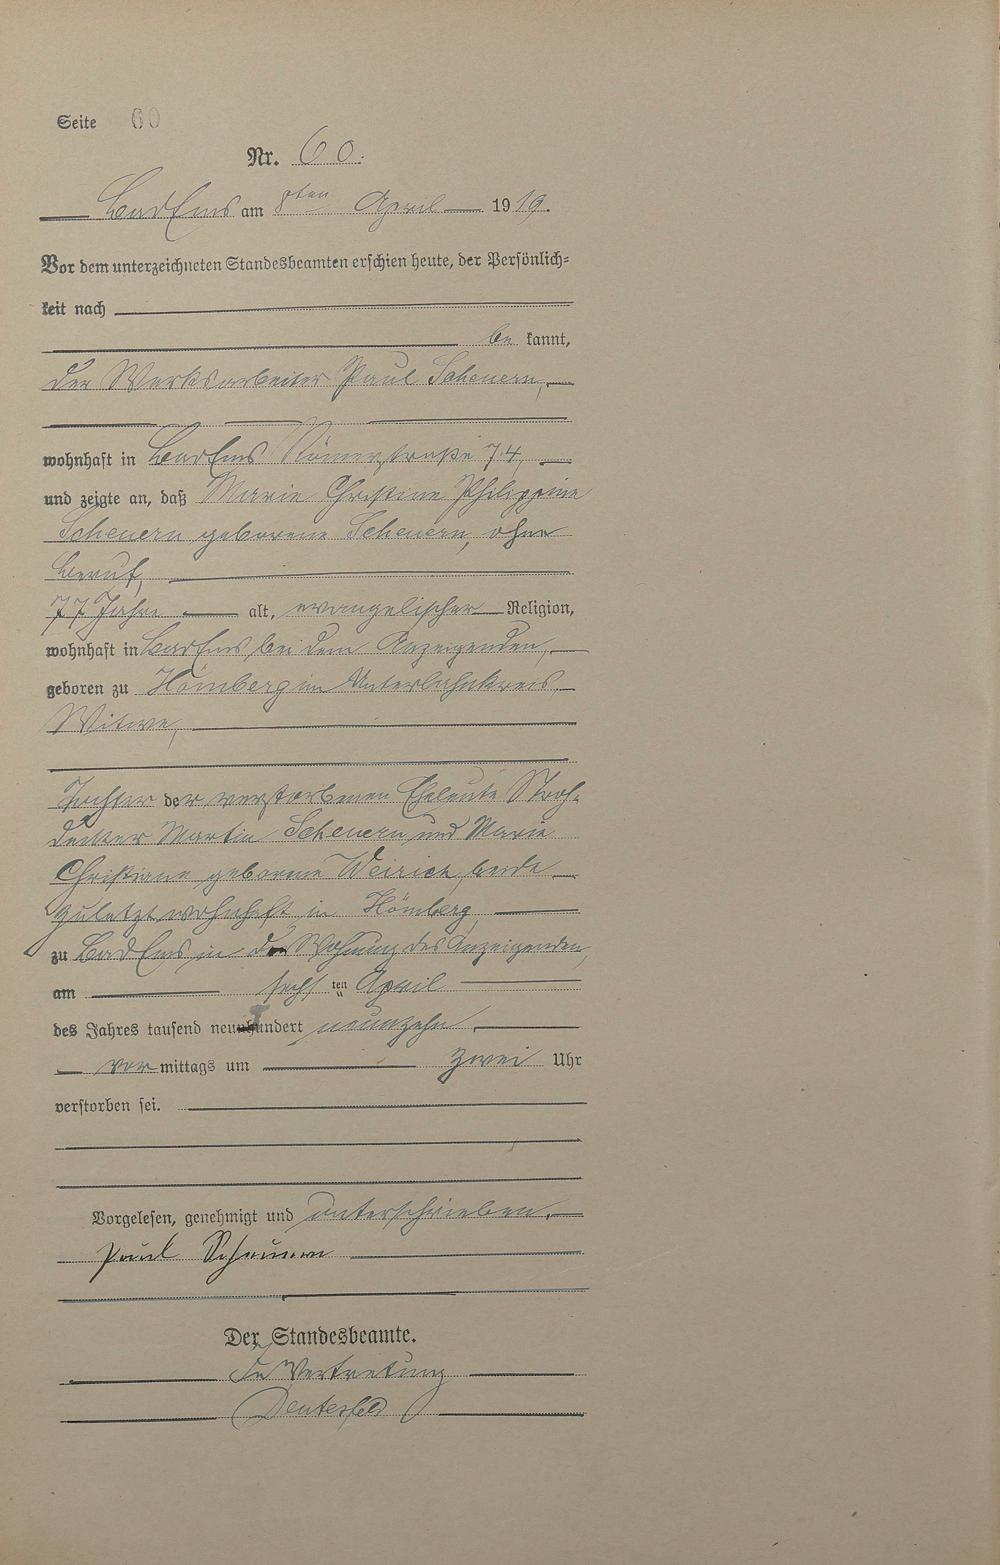 Seite 60
Nr. 60.
Bad Ems am 8ten April 1919.
Vor dem unterzeichneten Standesbeamten erschien heute, der Persönlich=
keit nach
be kannt,
der Werksarbeiter Paul Scheuern,
wohnhaft in Bad Ems Römerstraße 74,
und zeigte an, daß Marie Christine Philippine
Scheuern geborene Scheuern, ohne
Beruf,
77 Jahre alt, evangelischer Religion,
wohnhaft in Bad Ems bei dem Anzeigenden,
geboren zu Hömberg im Unterlahnkreis,
Witwe,
Tochter der verstorbenen Eheleute Stroh-
decker Martin Scheuern und Marie
Christiane geborene Weirich, beide
zuletzt wohnhaft in Hömberg
zu Bad Ems in der Wohnung des Anzeigenden,
am sechsten April
des Jahres tausend neunhundert neunzehn,
vor mittags um zwei Uhr
verstorben sei.
Vorgelesen, genehmigt und unterschrieben.
Paul Scheuern
Der Standesbeamte.
In Vertretung